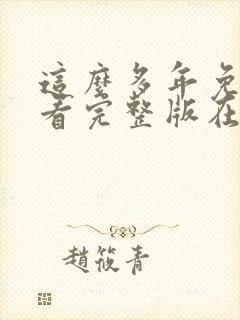 這麼多年免
看完整版在
趙筱青